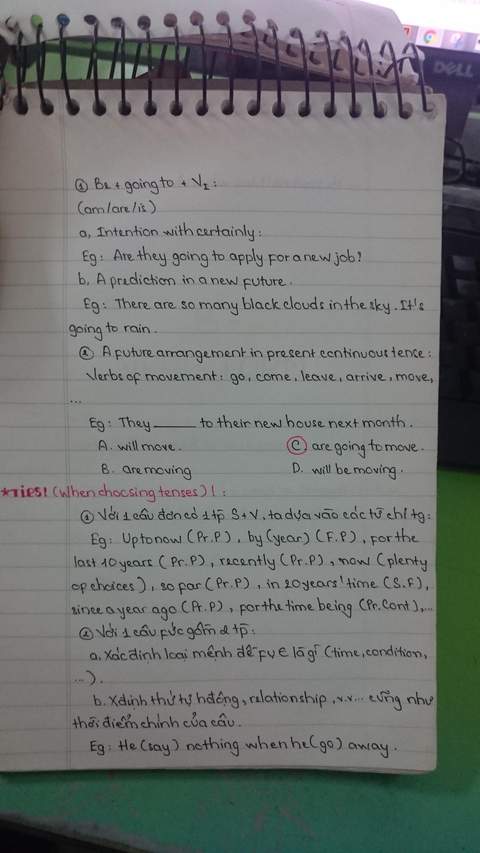 DELL
① Be + going to + V₁ :
(am/are/is)
a, Intention with certainly :
Eg : Are they going to apply for a new job?
b, A prediction in a new future.
Eg : There are so many black clouds in the sky. It's
going to rain.
② A future arrangement in present continuous tence :
Verbs of movement : go, come, leave, arrive, move,
...
Eg : They _____ to their new house next month.
A. will move. C are going to move.
B. are moving D. will be moving.
*TIPS! (When choosing tenses)! :
① Với 1 câu đơn có 1 tp S+V, ta dựa vào các từ chỉ tg :
Eg : Up to now (Pr.P), by (year) (F.P), for the
last 10 years (Pr.P), recently (Pr.P), now (plenty
op choices), so far (Pr.P), in 20 years' time (S.F),
since a year ago (Pr.P), for the time being (Pr.Cont),...
② Với 1 câu phức gồm 2 tp :
a. Xác định loại mệnh đề là gì (time, condition,
...).
b. Xđịnh thứ tự hđộng, relationship, v.v... cũng như
thời điểm chính của câu.
Eg : He (say) nothing when he (go) away.